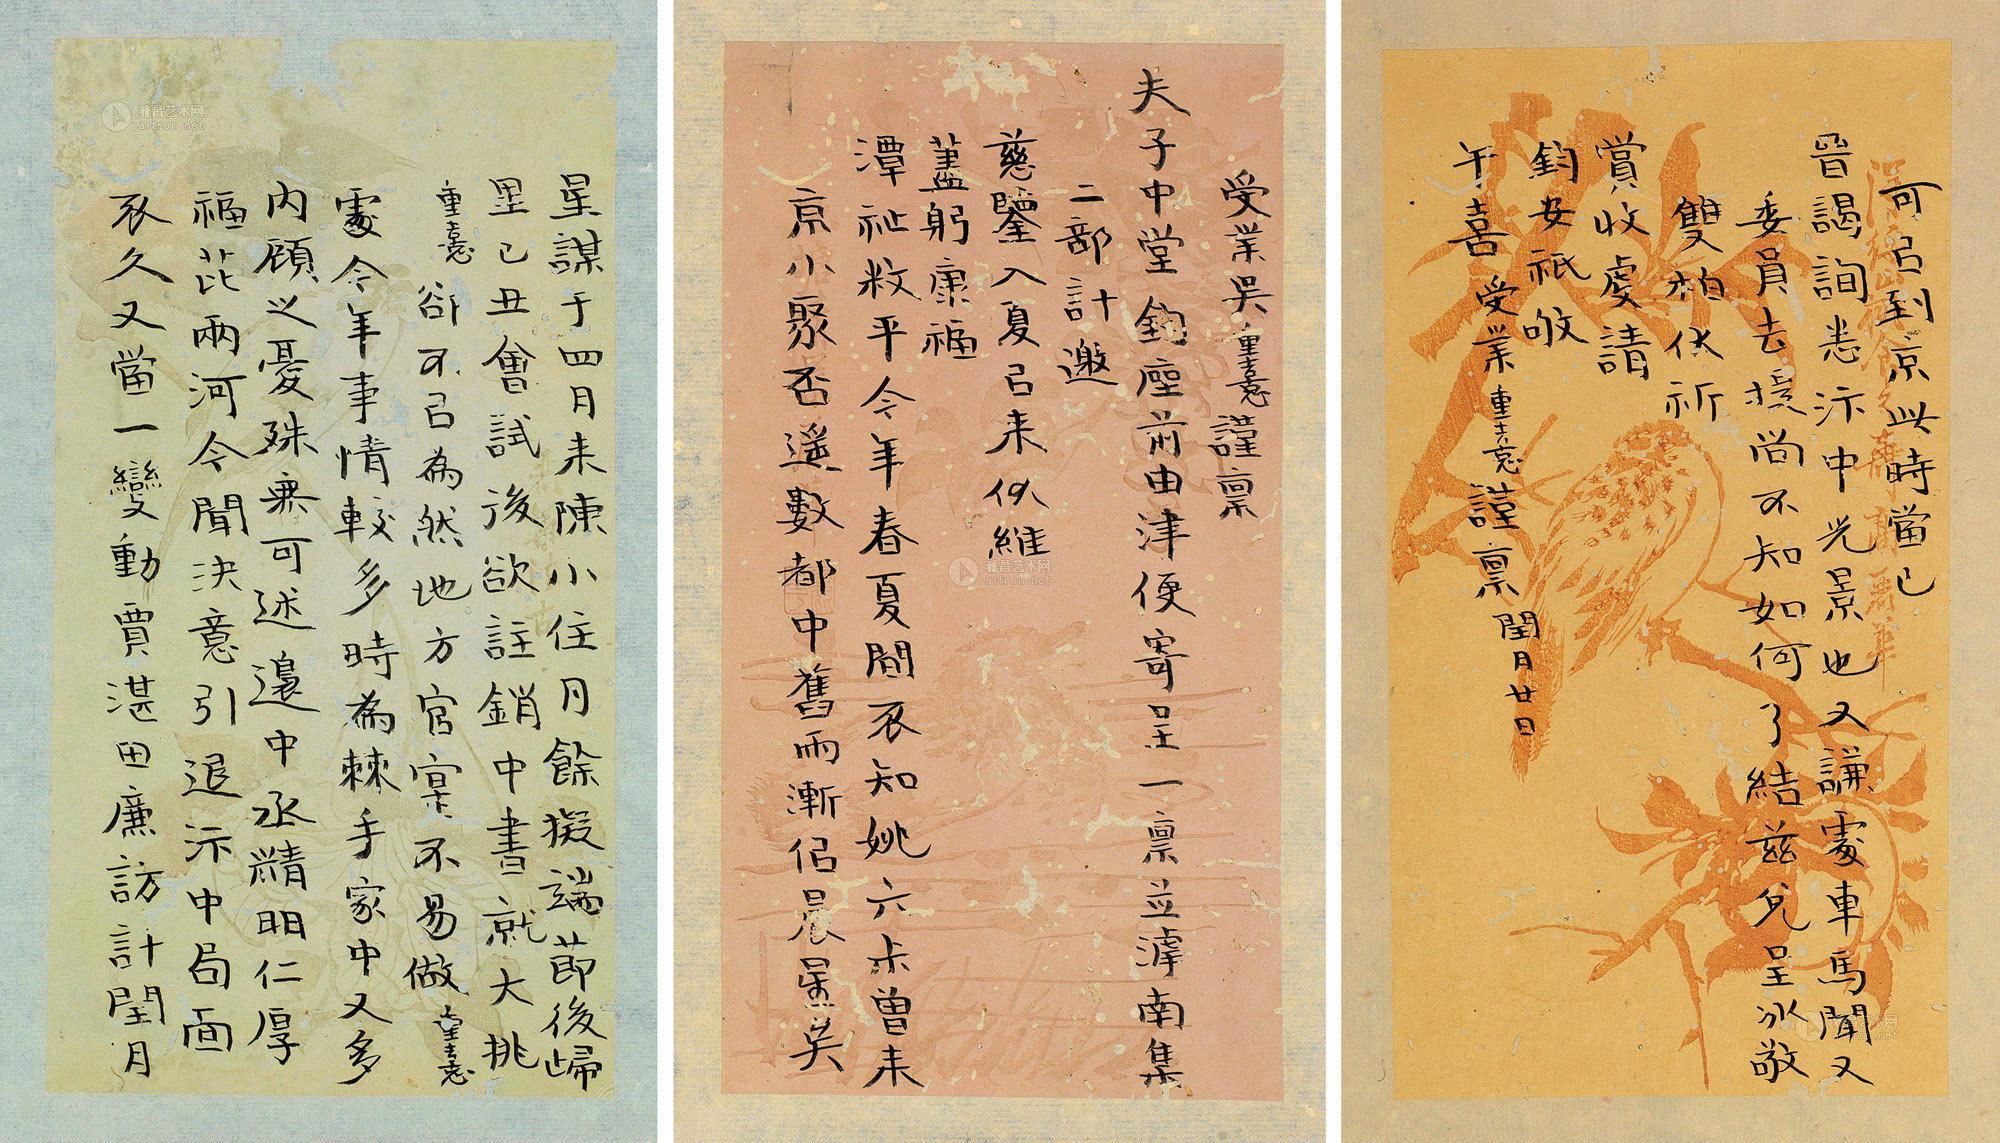 受業吳重憙謹稟
夫子中堂鈞座前由津便寄呈一稟並滹南集
二部計邀
慈鑒入夏㠯来伏維
藎躬康福
潭祉敉平今年春夏間不知姚六未曾来
京小聚否遥數都中舊雨漸侣晨星矣
星謀于四月来陳小住月餘擬端節後歸
里己丑會試後欲註銷中書就大挑
重憙卻不㠯為然地方官寔不易做重憙
處今年事情較多時為棘手家中又多
内顧之憂殊無可述邊中丞精明仁厚
福芘兩河今聞決意引退汴中局面
不久又當一變動賈湛田廉訪計閏月
可㠯到京此時當已
晉謁詢悉汴中光景也又謙處車馬聞又
委員去援尚不知如何了結兹兌呈冰敬
雙柏伏祈
賞收虔請
鈞安祗敂
午喜 受業重憙謹稟 閏月廿日